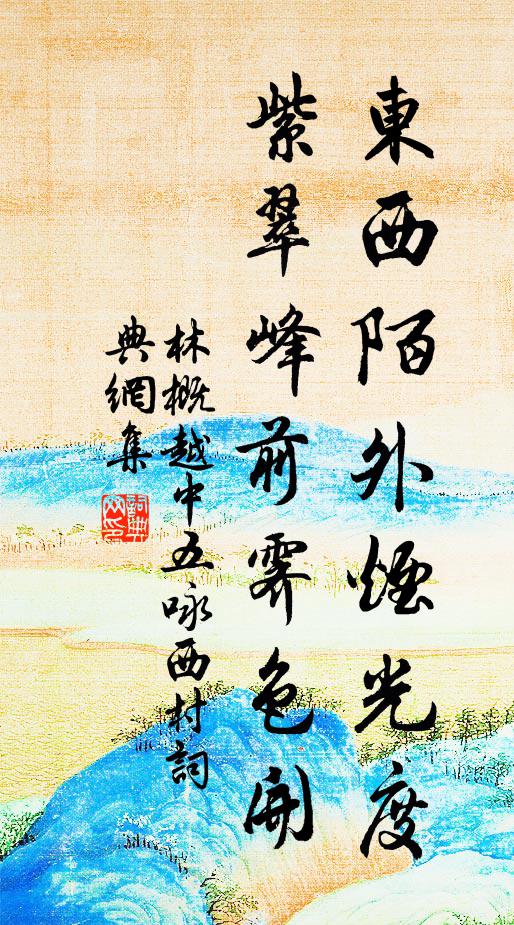 東西陌外煙光度
紫翠峰前霽色開
林概越中五咏西村詞
典網集